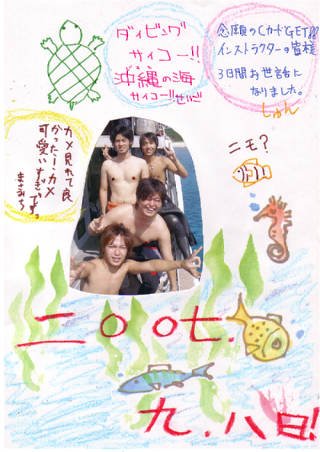 ダイビング
サイコー!!
沖縄の海
サイコー!!
念願のCカードGET!!
インストラクターの皆様
3日間お世話に
なりました。
しゅん
カメ見れて良
かったー!カメ
可愛いすぎです。
まさみち
ニモ?
二〇〇七.
九.八日!